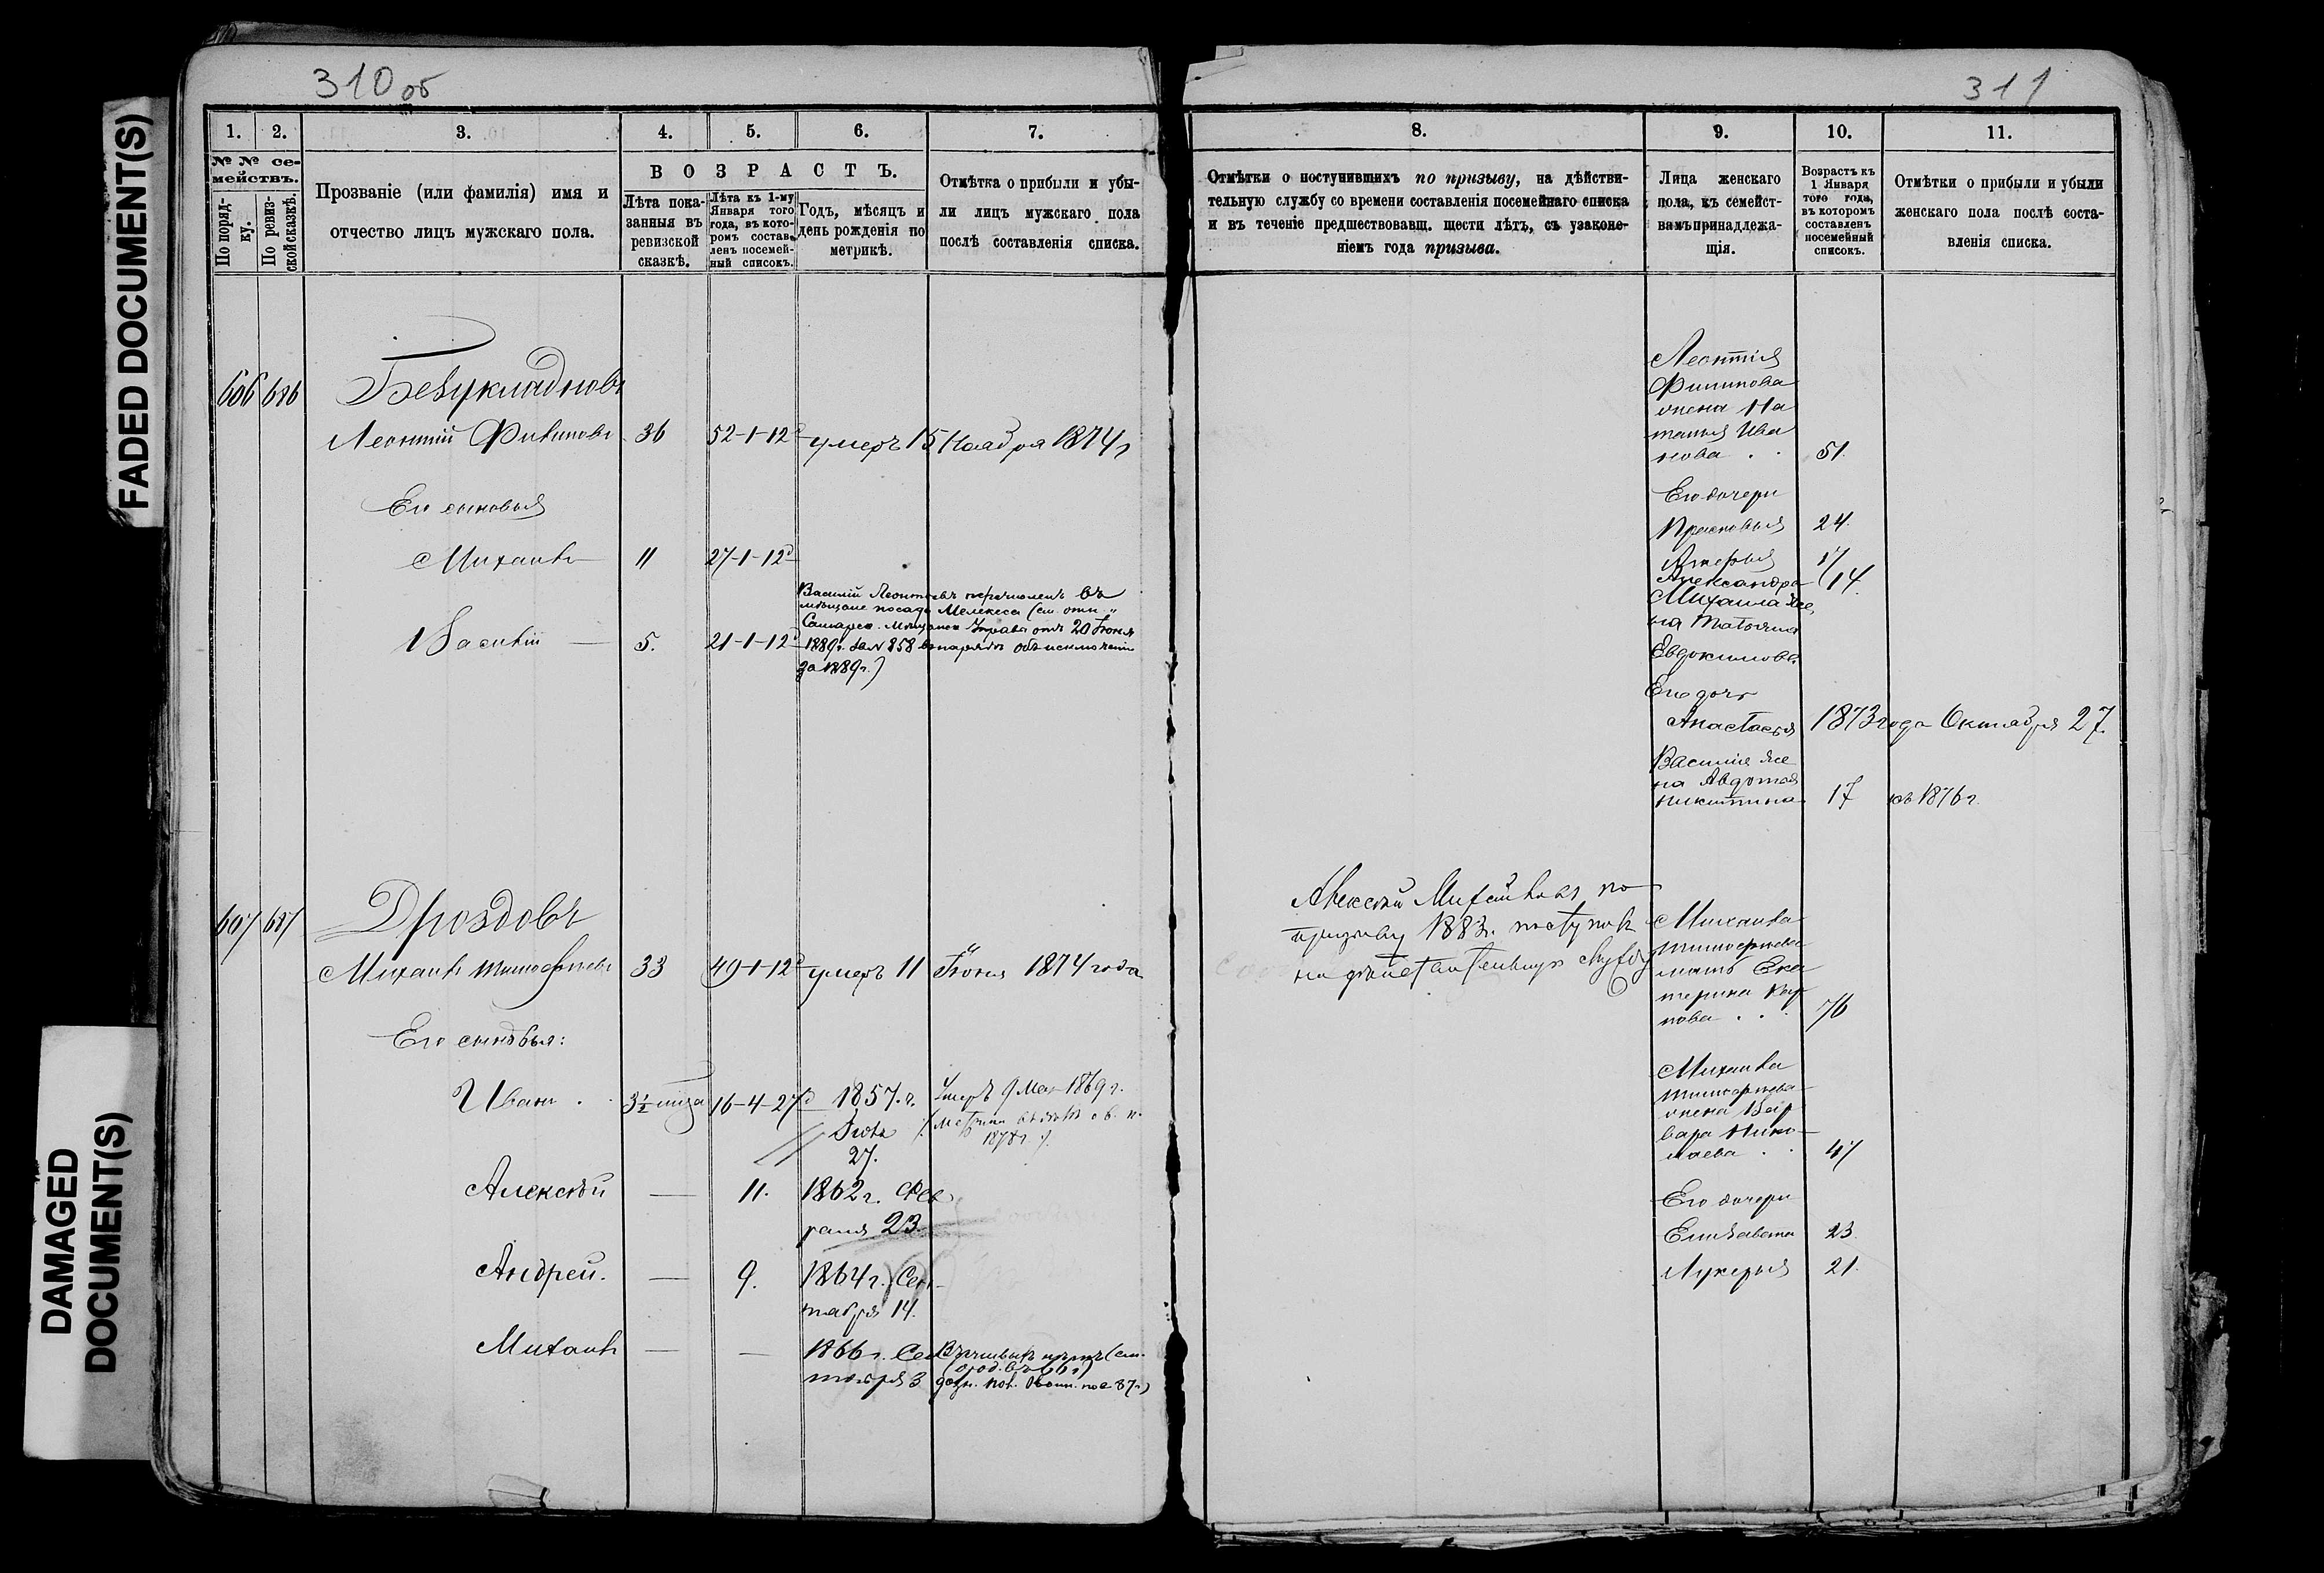 FADED DOCUMENT(S)
DAMAGED
DOCUMENT(S)
310 об
1. 2. 3. 4. 5. 6. 7.
№ № се-
мействъ.
По поряд-
ку.
По ревиз-
ской сказкѣ.
Прозваніе (или фамилія) имя и
отчество лицъ мужскаго пола.
ВОЗРАСТЪ.
Лѣта пока-
занныя въ
ревизской
сказкѣ.
Лѣта къ 1-му
Января того
года, въ кото-
ромъ состав-
ленъ посемей-
ный списокъ.
Годъ, мѣсяцъ и
день рожденія по
метрикѣ.
Отмѣтка о прибыли и убы-
ли лицъ мужскаго пола
послѣ составленія списка.
606 686 Безукладновъ
Леонтій Филиповъ 36 52-1-12 умеръ 15 Ноября 1874 г
Его сыновья
Михаилъ 11 27-1-12
Василій 5. 21-1-12
Василій Леонтьевъ перечисленъ въ
мѣщане посада Мелекеса (см. отн.
Самарск. Мѣщанск Управы отъ 20 Іюня
1889г. за № 858 въ нарядѣ объ исключеніи
за 1889г.)
607 687 Дроздовъ
Михаилъ Тимофѣевъ 33 49-1-12 умеръ 11 Іюня 1874 года
Его сыновья:
Иванъ 3½ 16-4-27 1857.г.
Іюля
27.
Умеръ 9 Мая 1869 г.
1878г.
Алексѣй — 11. 1862 г. Фев
раля 23.
Андрей. — 9. 1864 г. Сен-
тября 14.
Михаилъ — — 1866 г. Сен
тября 3
311
8. 9. 10. 11.
Отмѣтки о поступившихъ по призыву, на дѣйстви-
тельную службу со времени составленія посемейнаго списка
и въ теченіе предшествовавш. шести лѣтъ, съ узаконе-
ніемъ года призыва.
Лица женскаго
пола, къ семейст-
вамъ принадлежа-
щія.
Возрастъ къ
1 Января
того года,
въ которомъ
составленъ
посемейный
списокъ.
Отмѣтки о прибыли и убыли
женскаго пола послѣ соста-
вленія списка.
Леонтія
Филипова
жена На
талья Ива
нова 51.
Его дочери
Прасковья 24.
17
Александра 14.
Михаила же
на Татьяна
Евдокимова
Его дочь
Анастасья 1873 года Октября 27.
Василія же
на Авдотья
Никитина 17 къ 1876 г.
Алексѣй Михайловъ по
призыву 1883г. поступилъ
на дѣйствительную службу
Михаила
Тимофѣева
мать Ека
терина Кар
пова 76
Михаила
Тимофѣева
жена Вар
вара Нико-
лаева 47
Его дочери
Елизавета 23.
Лукерья 21.